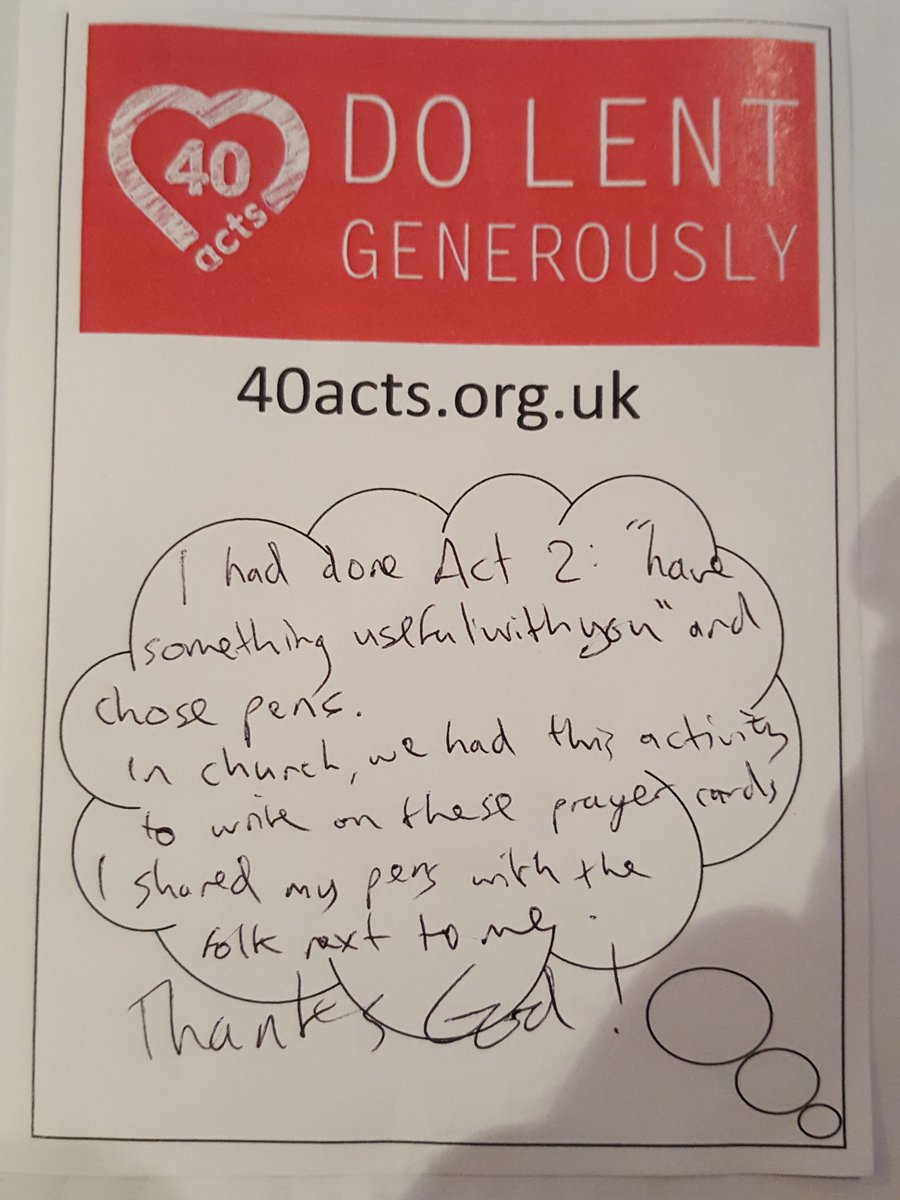 40
acts
DO LENT
GENEROUSLY
40acts.org.uk
I had done Act 2: "have
something useful with you" and
chose pens.
In church, we had this activity
to write on these prayer cards
I shared my pens with the
folk next to me.
Thanks God!